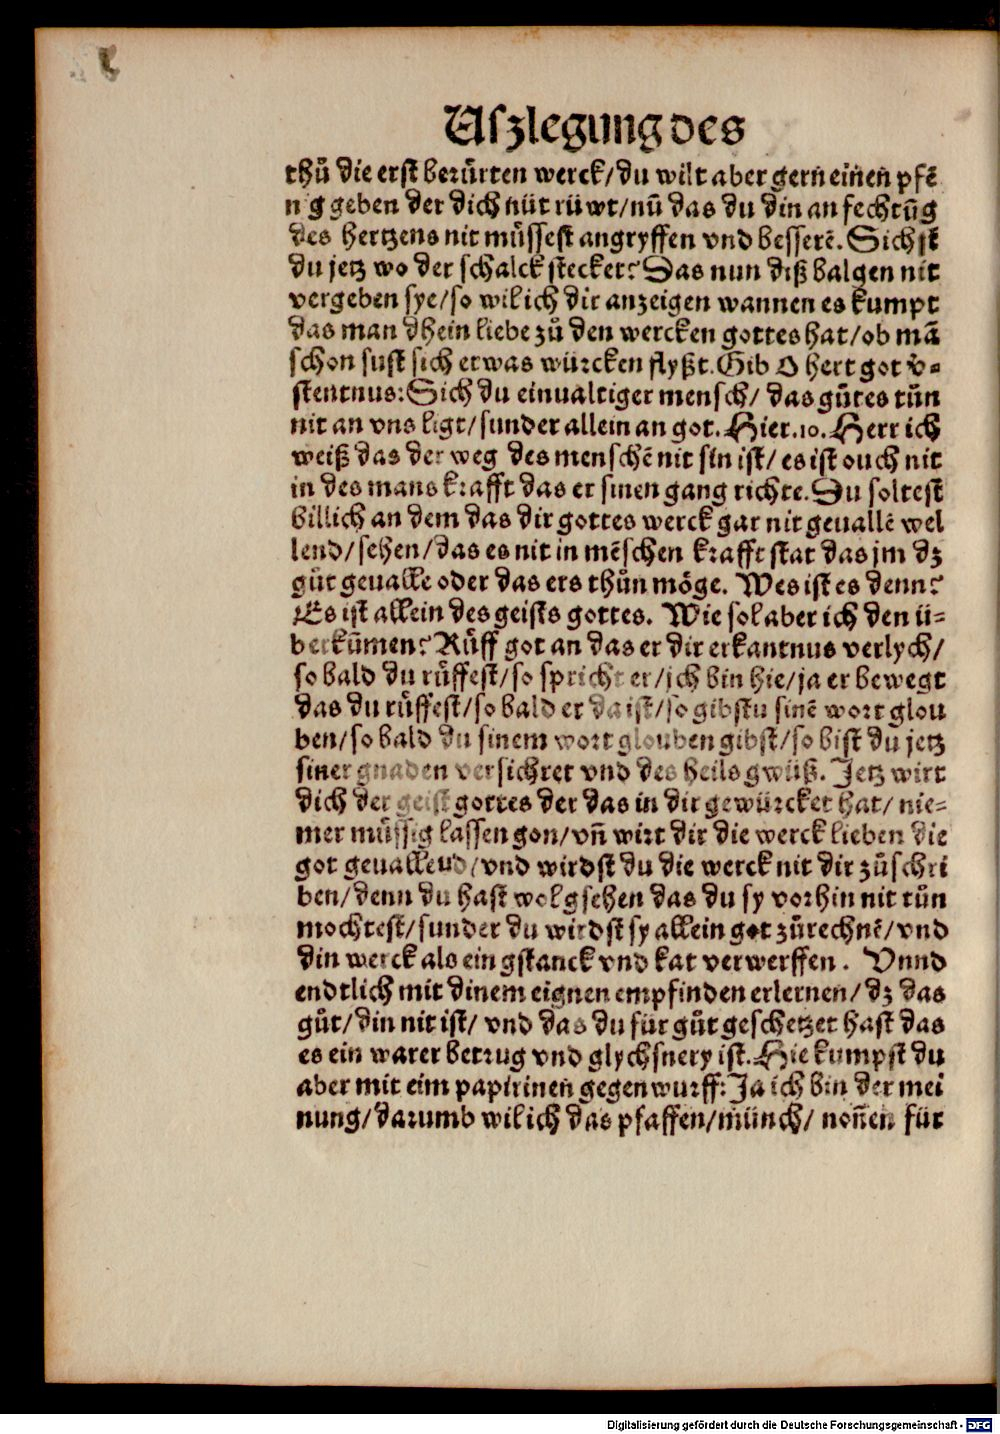 Uſzlegung des
thuͦ die erst beruͤrten werck/du wilt aber gern einen pfē
n g geben der dich nüt rüwt/nū das du din anfechtūg
des hertzens nit muͤssest angryffen vnd besserē. Sichst
du jetz wo der schalck stecket? Das nun diß balgen nit
vergeben sye/so wil ich dir anzeigen wannen es kumpt
das man dhein liebe zuͦ den wercken gottes hat/ob mā
schon sust sich etwas würcken flyßt. Gib O herr got v̄-
stentnus: Sich du einualtiger mensch/ das guͦtes tuͦn
nit an vns ligt/sunder allein an got. Hier.10. Herr ich
weiß das der weg des menschē nit sin ist/ es ist ouch nit
in des mans krafft das er sinen gang richte. Du soltest
billich an dem das dir gottes werck gar nit geuallē wel
lend/sehen/das es nit in mēschen krafft stat das jm dz
guͦt geualle oder das ers thuͦn möge. Wes ist es denn?
Es ist allein des geists gottes. Wie sol aber ich den ü-
berkūmen? Ruͤff got an das er dir erkantnus verlych/
so bald du ruͤffest/so spricht er/jch bin hie/ja er bewegt
das du ruͤffest/so bald er da ist/so gibstu sinē wort glou
ben/so bald du sinem wort glouben gibst/so bist du jetz
siner gnaden versichret vnd des heils gwüß. Jetz wirt
dich der geist gottes der das in dir gewürcket hat/ nie-
mer muͤssig lassen gon/vn̄ wirt dir die werck lieben die
got geuallend/vnd wirdst du die werck nit dir zuͦschri
ben/denn du hast wol gsehen das du sy vorhin nit tuͦn
mochtest/sunder du wirdst sy allein got zuͦrechnē/vnd
din werck als ein gstanck vnd kat verwerffen. Vnnd
endtlich mit dinem eignen empfinden erlernen/ dz das
guͦt/din nit ist/ vnd das du für guͦt geschetzet hast das
es ein warer betrug vnd glychsnery ist. Hie kumpst du
aber mit eim papirinen gegenwurff: Ja ich bin der mei
nung/darumb wil ich das pfaffen/münch/ non̄en für
Digitalisierung gefördert durch die Deutsche Forschungsgemeinschaft - DFG